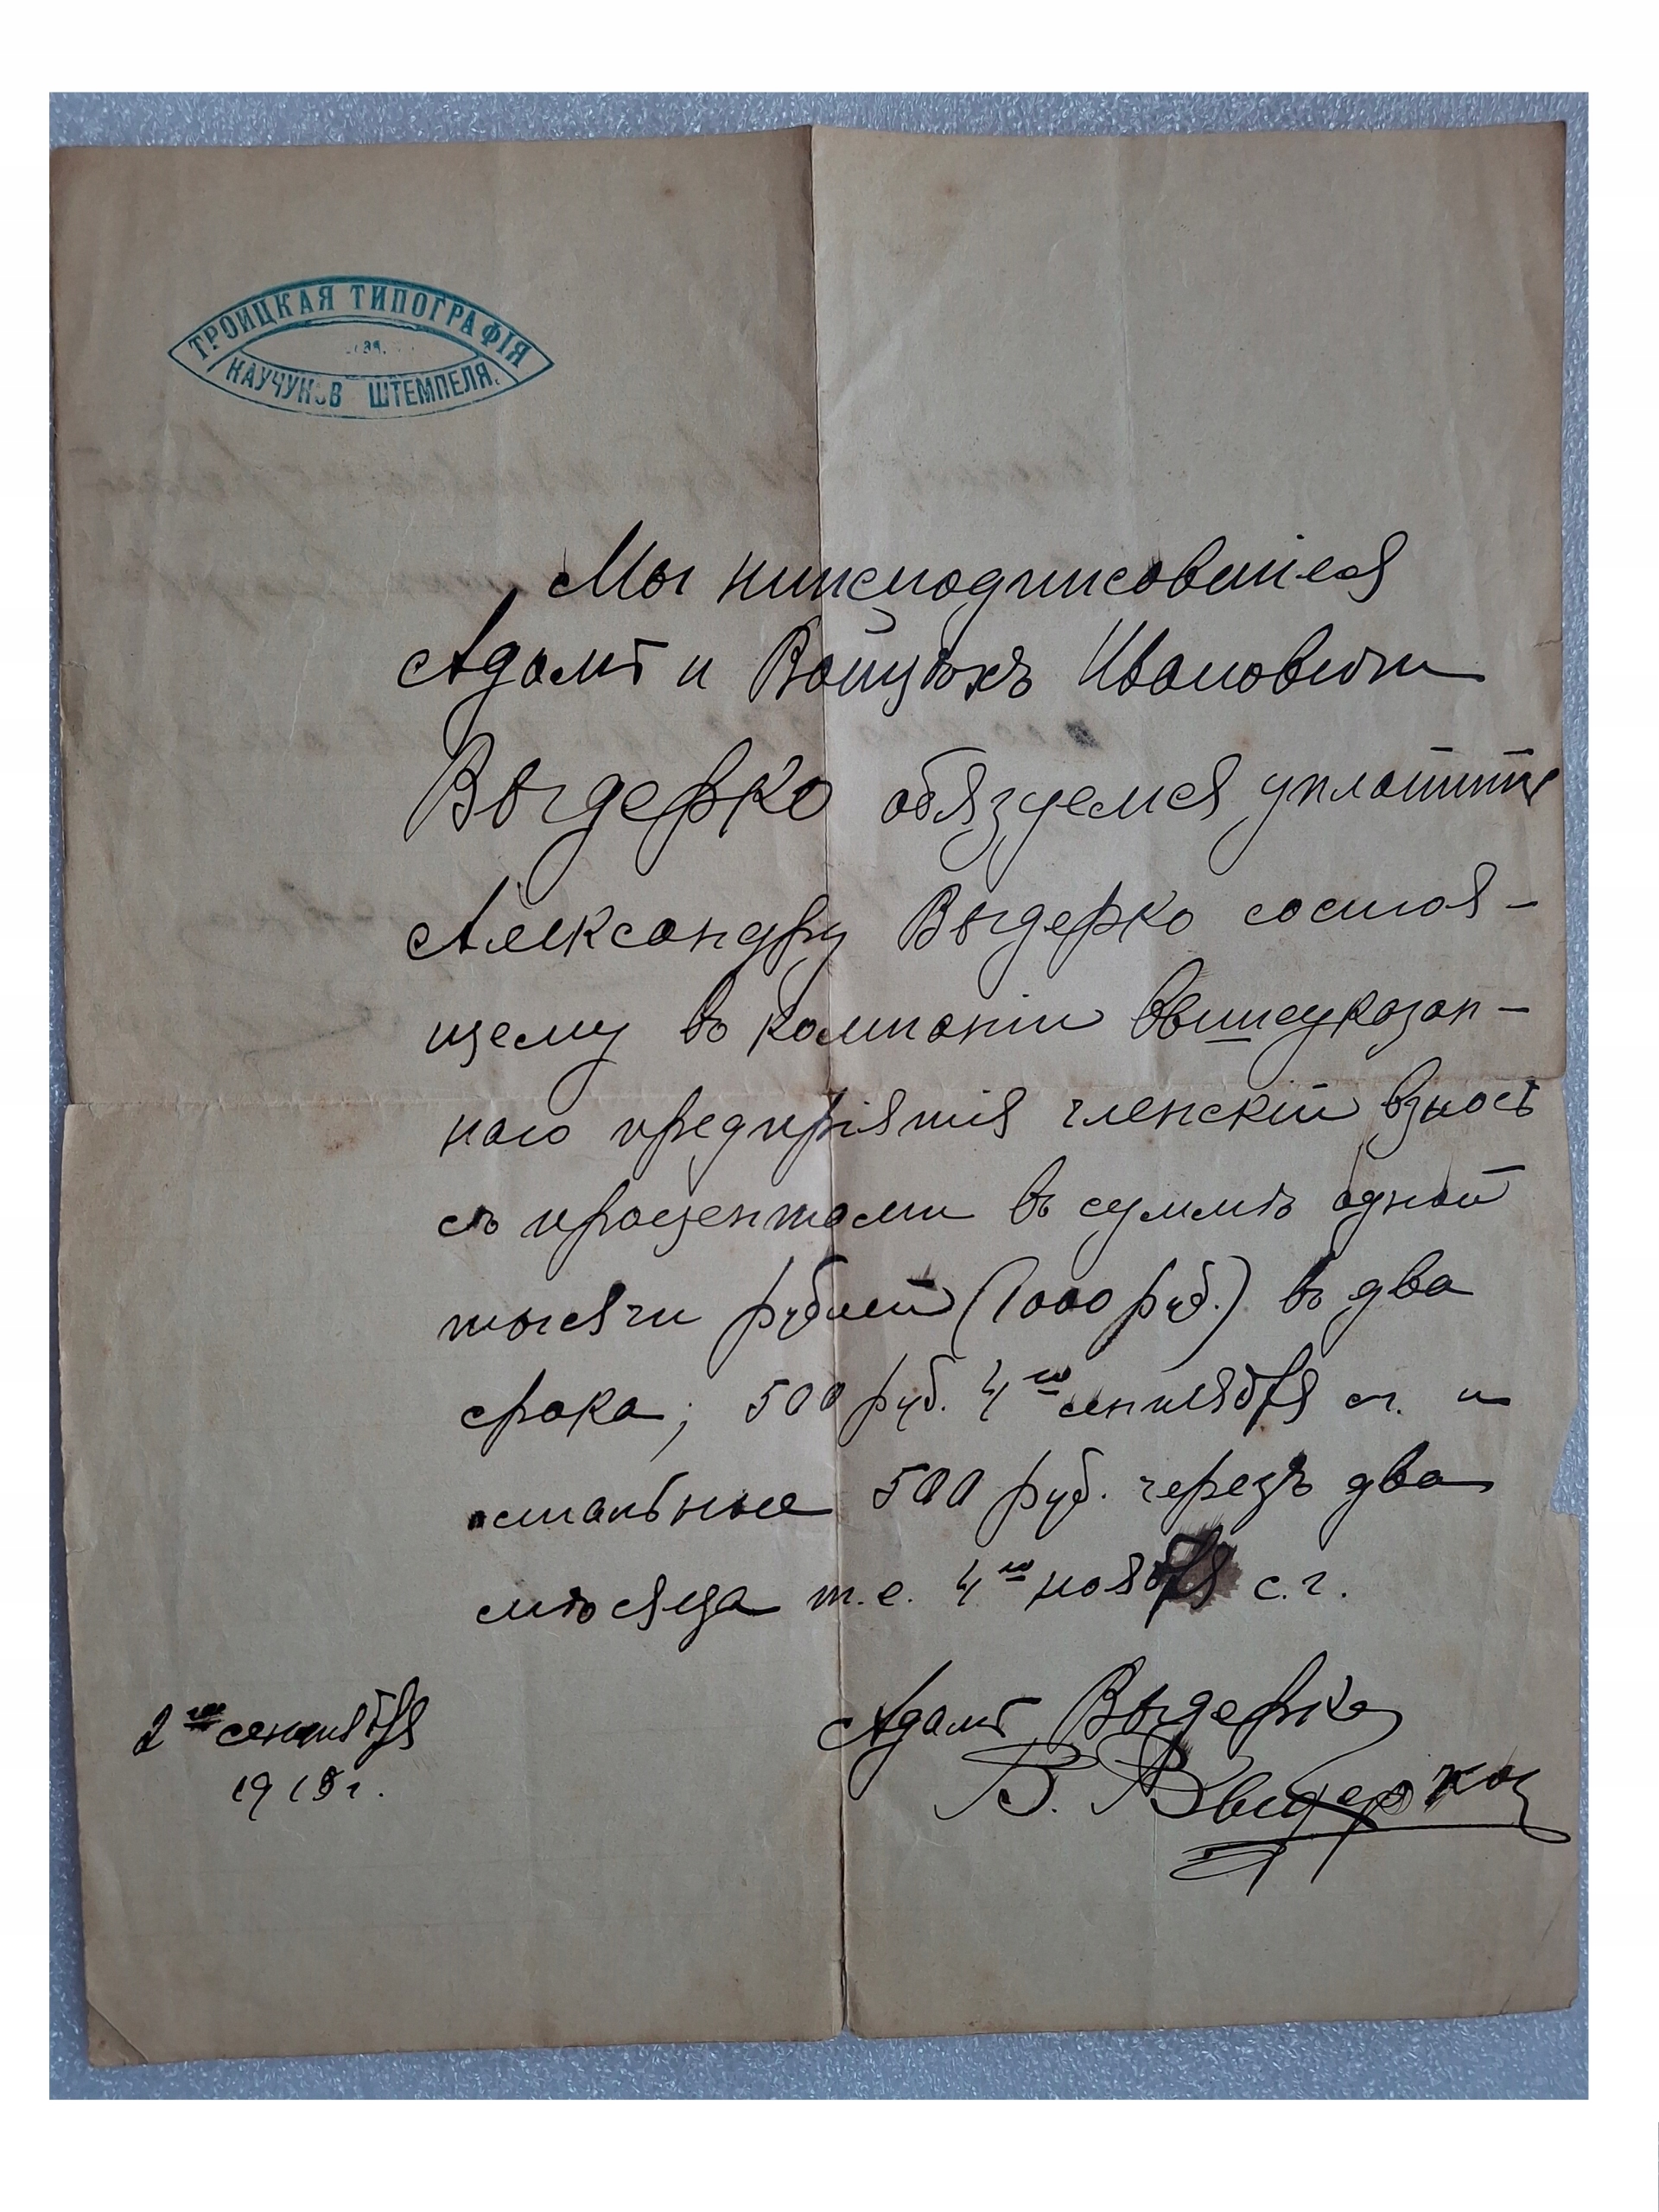 ТРОИЦКАЯ ТИПОГРАФІЯ
КАУЧУКОВ ШТЕМПЕЛЯ.
Мы нижеподписавшіеся
Адамъ и Войцѣхъ Ивановичи
Выдерко обязуемся уплатить
Александру Выдерко состоя-
щему въ компаніи вышеуказан-
наго предпріятія членскій взносъ
съ процентами въ суммѣ одной
тысячи рублей (1000 руб.) въ два
срока; 500 руб. 4го сентября с.г. и
остальные 500 руб. черезъ два
мѣсяца т.е. 4го ноября с.г.
2го сентября
1918 г.
Адамъ Выдерко
В. Выдерко